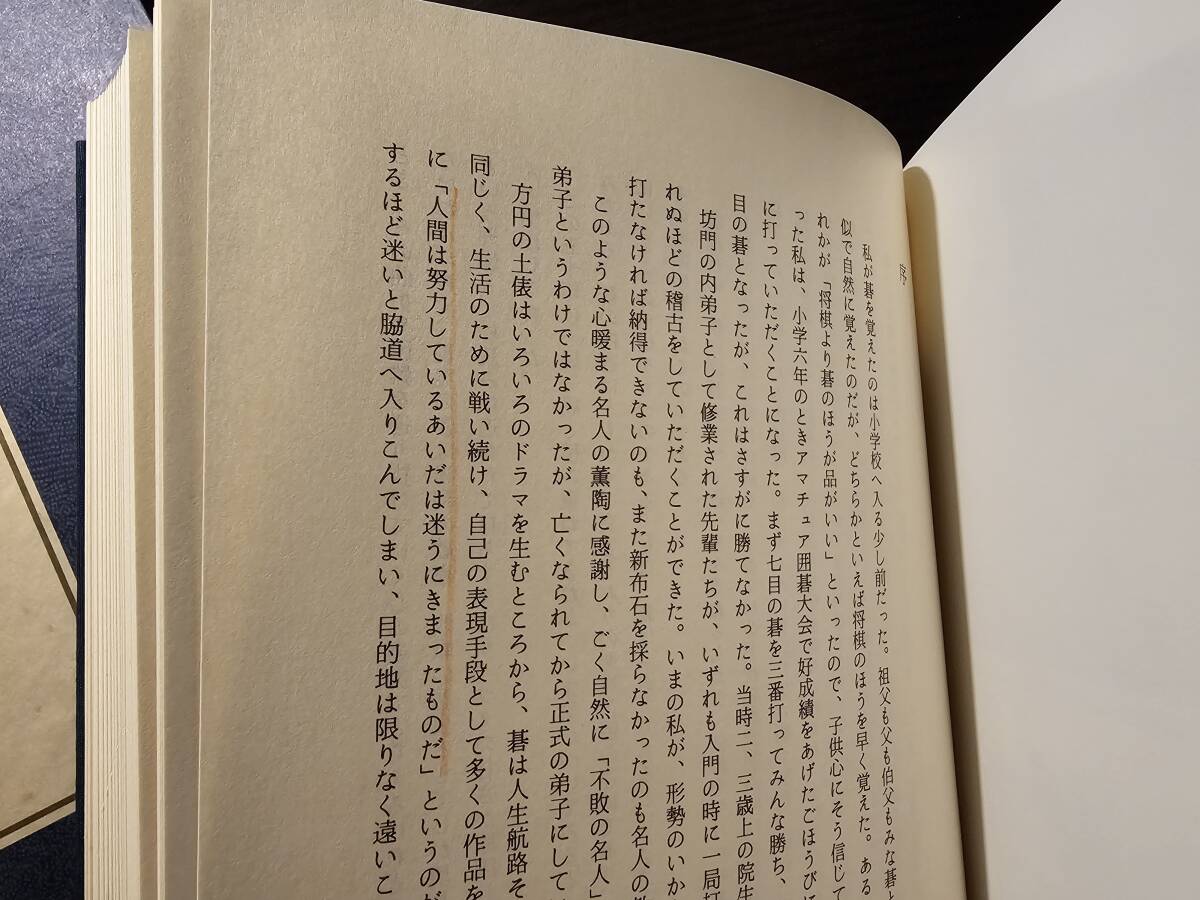 序
私が碁を覚えたのは小学校へ入る少し前だった。祖父も父も伯父もみな碁と
似で自然に覚えたのだが、どちらかといえば将棋のほうを早く覚えた。ある
れかが「将棋より碁のほうが品がいい」といったので、子供心にそう信じて
った私は、小学六年のときアマチュア囲碁大会で好成績をあげたごほうびに
に打っていただくことになった。まず七目の碁を三番打ってみんな勝ち、
目の碁となったが、これはさすがに勝てなかった。当時二、三歳上の院生
坊門の内弟子として修業された先輩たちが、いずれも入門の時に一局打
れぬほどの稽古をしていただくことができた。いまの私が、形勢のいか
打たなければ納得できないのも、また新布石を採らなかったのも名人の
このような心暖まる名人の薫陶に感謝し、ごく自然に「不敗の名人」
弟子というわけではなかったが、亡くなられてから正式の弟子にして
方円の土俵はいろいろのドラマを生むところから、碁は人生航路そ
同じく、生活のために戦い続け、自己の表現手段として多くの作品を
に「人間は努力しているあいだは迷うにきまったものだ」というのが
するほど迷いと脇道へ入りこんでしまい、目的地は限りなく遠いこ